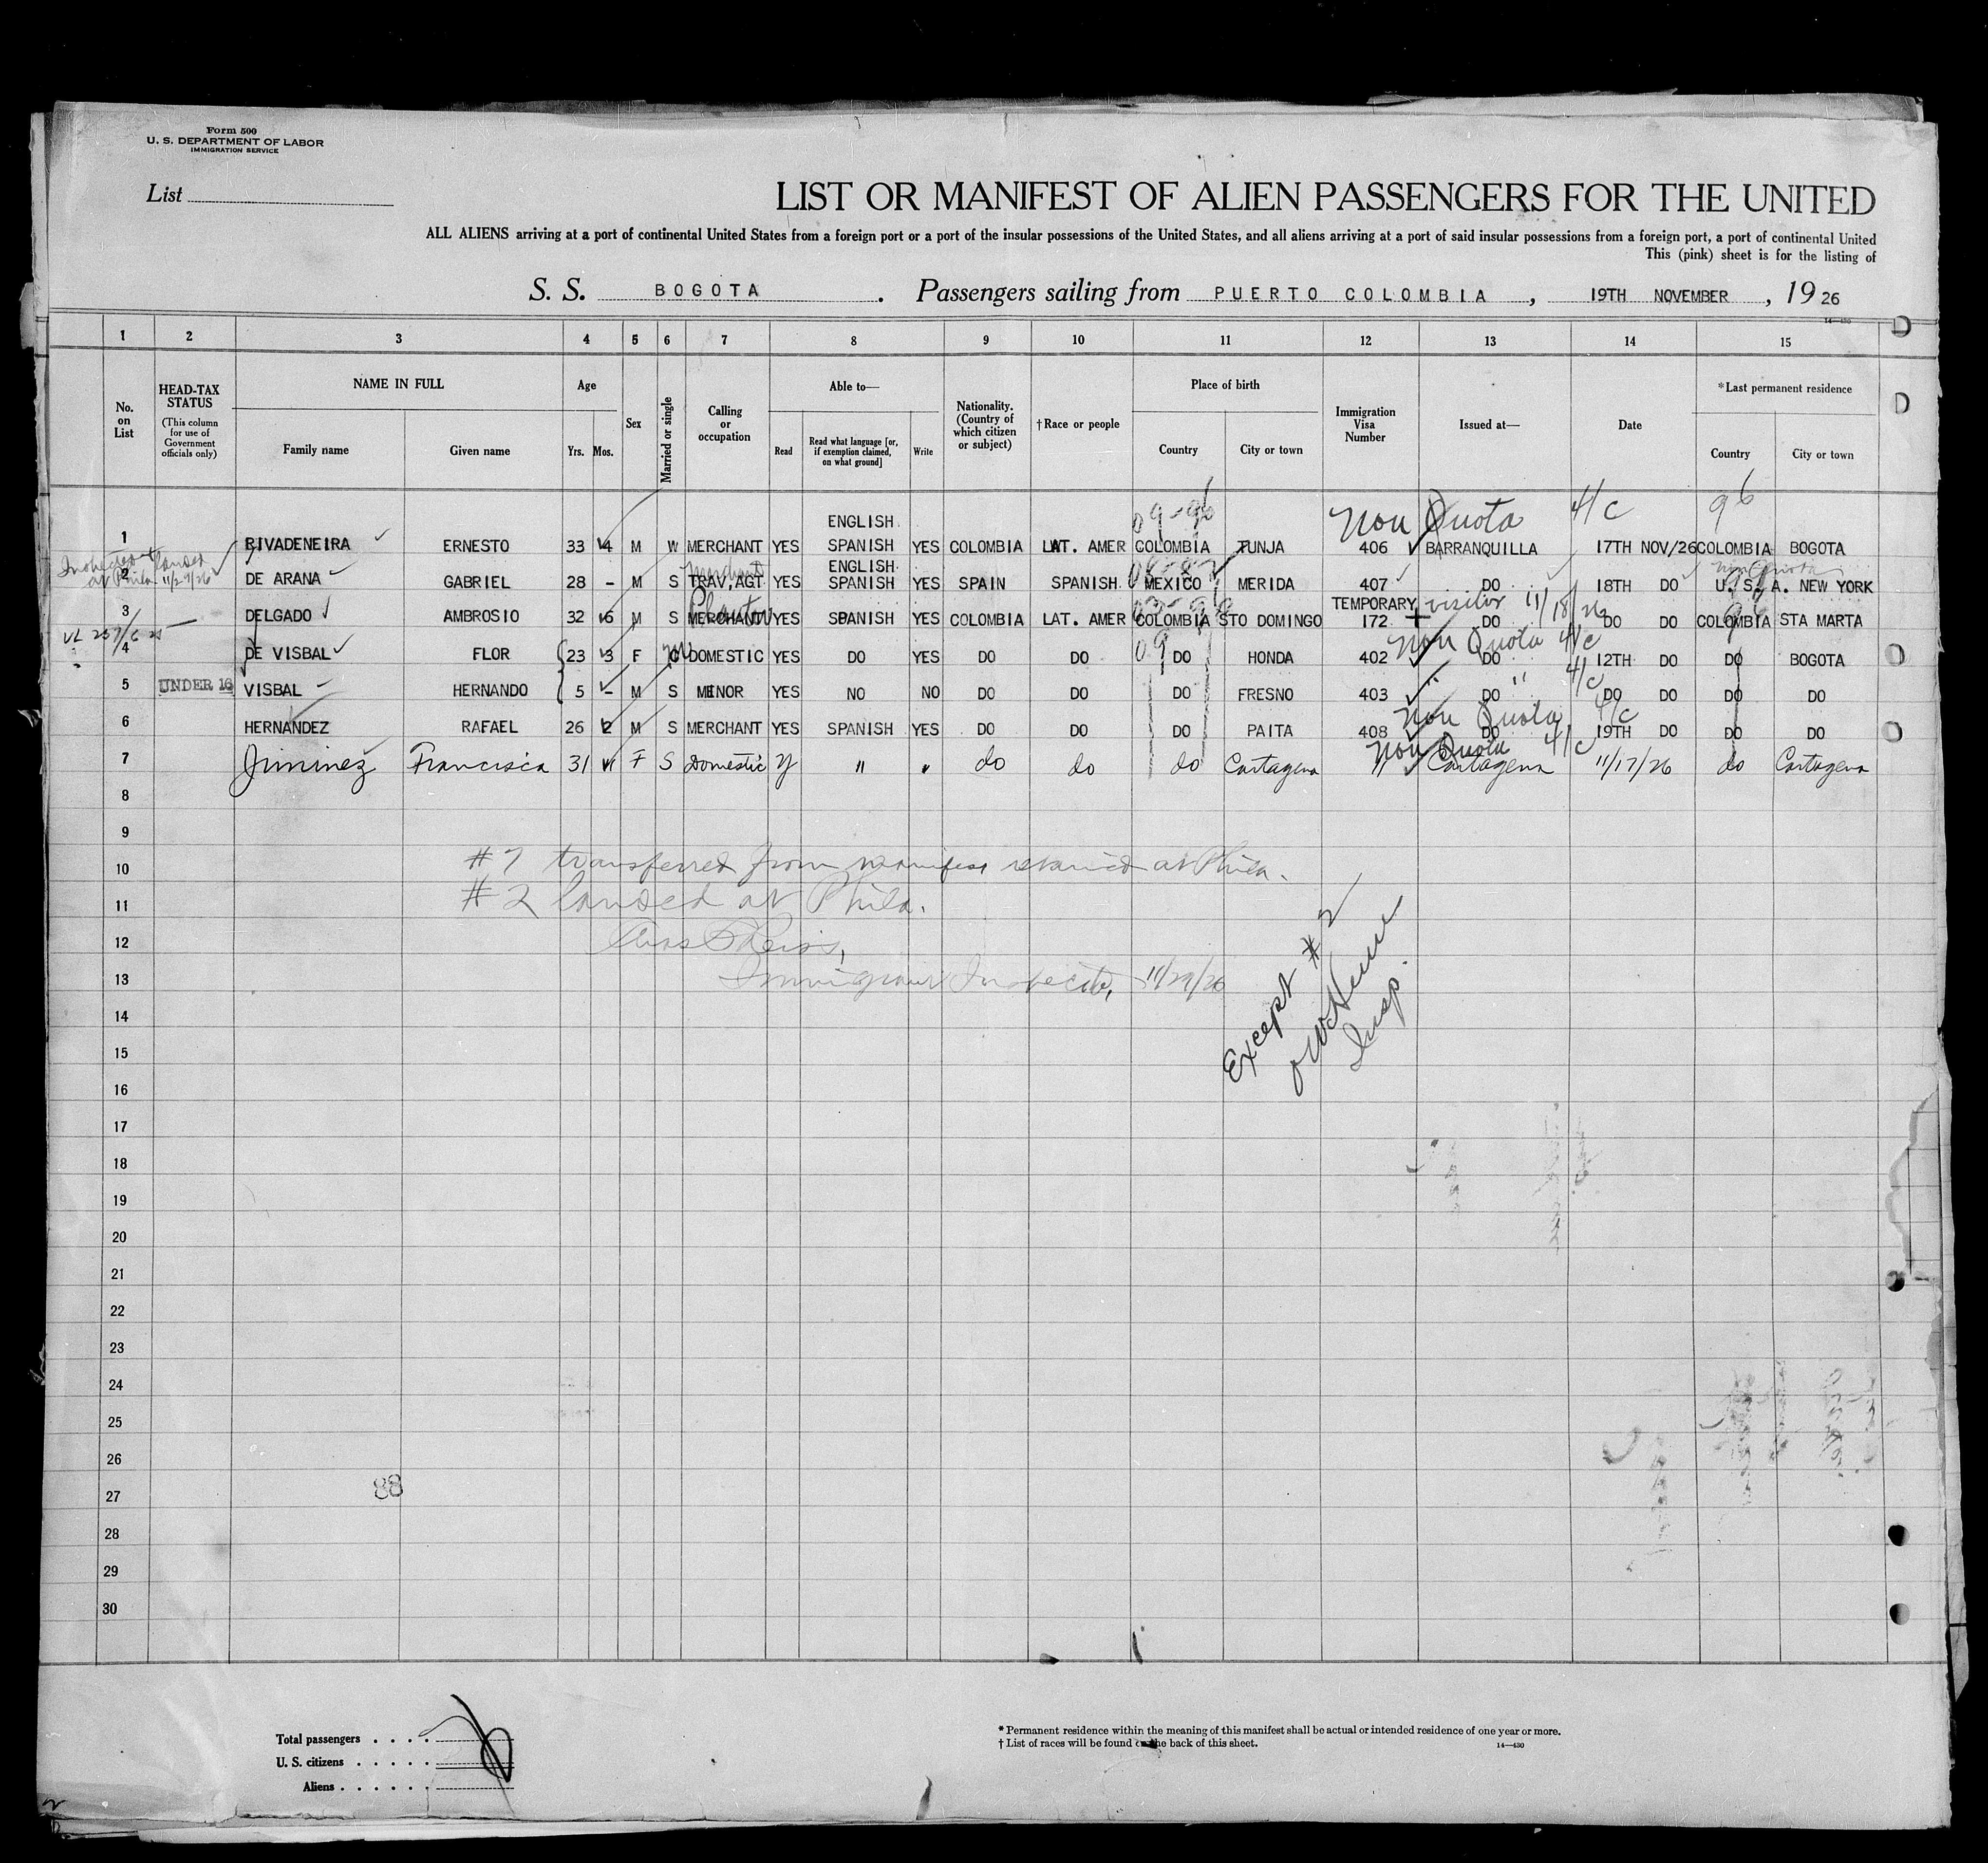 Form 500
U. S. DEPARTMENT OF LABOR
IMMIGRATION SERVICE
List
LIST OR MANIFEST OF ALIEN PASSENGERS FOR THE UNITED
ALL ALIENS arriving at a port of continental United States from a foreign port or a port of the insular possessions of the United States, and all aliens arriving at a port of said insular possessions from a foreign port, a port of continental United
This (pink) sheet is for the listing of
S. S. BOGOTA. Passengers sailing from PUERTO COLOMBIA, 19TH NOVEMBER, 19 26
14—430
1 2 3 4 5 6 7 8 9 10 11 12 13 14 15
No. on List
HEAD-TAX STATUS (This column for use of Government officials only)
NAME IN FULL
Family name Given name
Age
Yrs. Mos.
Sex
Married or single
Calling or occupation
Able to—
Read Read what language [or, if exemption claimed, on what ground] Write
Nationality. (Country of which citizen or subject)
†Race or people
Place of birth
Country City or town
Immigration Visa Number
Issued at—
Date
*Last permanent residence
Country City or town
09-96 Non Quota 4/c 96
ENGLISH
1 RIVADENEIRA ERNESTO 33 4 M W MERCHANT YES SPANISH YES COLOMBIA LAT. AMER COLOMBIA TUNJA 406 BARRANQUILLA 17TH NOV/26 COLOMBIA BOGOTA
Inspected & landed at Phila 11/27/26
Merchant ENGLISH Non Quota
2 DE ARANA GABRIEL 28 - M S TRAV,AGT YES SPANISH YES SPAIN SPANISH MEXICO MERIDA 407 DO 18TH DO U.S.A. NEW YORK
Planter TEMPORARY visitor 11/18/26
3 DELGADO AMBROSIO 32 6 M S MERCHANT YES SPANISH YES COLOMBIA LAT. AMER COLOMBIA STO DOMINGO 172 DO DO DO COLOMBIA STA MARTA
09 Non Quota 4/c
4 DE VISBAL FLOR 23 3 F M DOMESTIC YES DO YES DO DO DO HONDA 402 DO 12TH DO DO BOGOTA
" " 4/c
5 UNDER 16 VISBAL HERNANDO 5 - M S MINOR YES NO NO DO DO DO FRESNO 403 DO DO DO DO DO
Non Quota 4/c
6 HERNANDEZ RAFAEL 26 2 M S MERCHANT YES SPANISH YES DO DO DO PAITA 408 DO 19TH DO DO DO
Non Quota 4/c
7 Jiminez Francisca 31 F S Domestic y " " do do do Cartagena 11 Cartagena 11/17/26 do Cartagena
8
9
10 #7 transferred from manifest retained at Phila.
11 #2 landed at Phila.
12
13 Immigrant Inspector, 11/29/26
Except #2
Insp.
14
15
16
17
18
19
20
21
22
23
24
25
26
27
88
28
29
30
Total passengers . . . .
U. S. citizens . . . . .
Aliens . . . . . .
* Permanent residence within the meaning of this manifest shall be actual or intended residence of one year or more.
† List of races will be found on the back of this sheet.
14—430